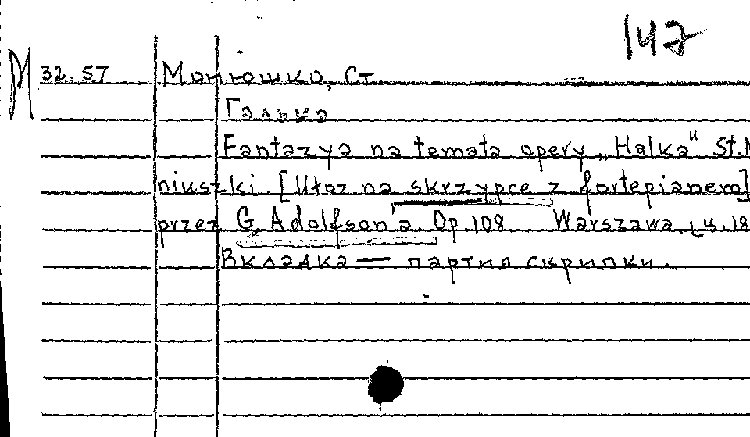 147
М 32.57 Монюшко, Ст.
Галька
Fantazya na temata opery „Halka" St. M
niuszki. [Utoz na skrzypce z fortepianem]
przez G. Adolfson'a. Op. 108 Warszawa,
Вкладка — партия скрипки.